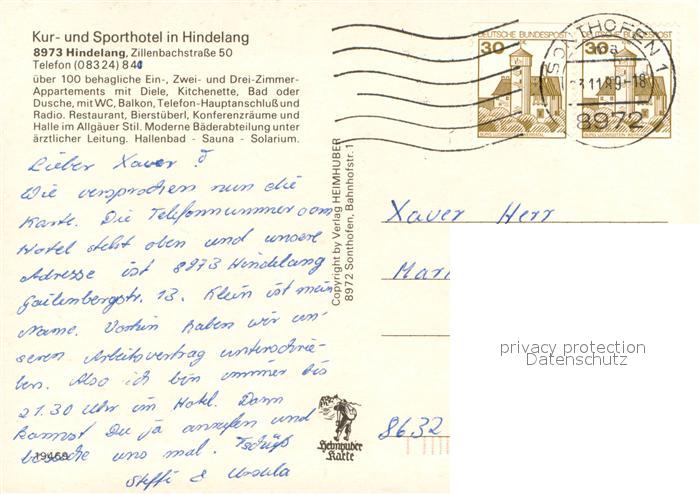 Kur- und Sporthotel in Hindelang
8973 Hindelang, Zillenbachstraße 50
Telefon (08324) 841
über 100 behagliche Ein-, Zwei- und Drei-Zimmer-
Appartements mit Diele, Kitchenette, Bad oder
Dusche, mit WC, Balkon, Telefon-Hauptanschluß und
Radio. Restaurant, Bierstüberl, Konferenzräume und
Halle im Allgäuer Stil. Moderne Bäderabteilung unter
ärztlicher Leitung. Hallenbad - Sauna - Solarium.
Lieber Xaver!
Wie versprochen nun die
Karte. Die Telefonnummer vom
Hotel steht oben und unsere
Adresse ist 8973 Hindelang
Gailenbergstr. 13. Klein ist mein
Name. Vorhin haben wir un-
seren Arbeitsvertrag unterschrie-
ben. Also ich bin immer bis
21.30 Uhr im Hotel. Dann
kannst Du ja anrufen und
besuche uns mal. Tschüß
Steffi & Ursula
19469
Copyright by Verlag HEIMHUBER
8972 Sonthofen, Bahnhofstr. 1
Heimhuber
Karte
DEUTSCHE BUNDESPOST
30
DEUTSCHE BUNDESPOST
30
SONTHOFEN 1
8972
Xaver Herr
Mar
8632
privacy protection
Datenschutz